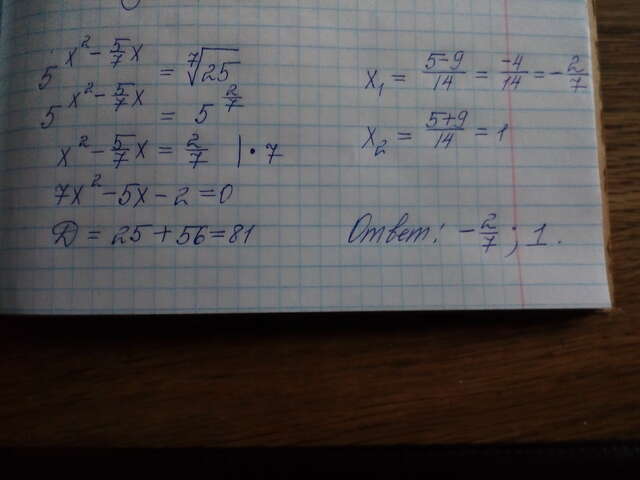 5^{x² - 5/7 x} = ⁷√25
5^{x² - 5/7 x} = 5^{2/7}
x² - 5/7 x = 2/7 | · 7
7x² - 5x - 2 = 0
D = 25 + 56 = 81
x₁ = (5-9)/14 = -4/14 = -2/7
x₂ = (5+9)/14 = 1
Ответ: -2/7; 1.